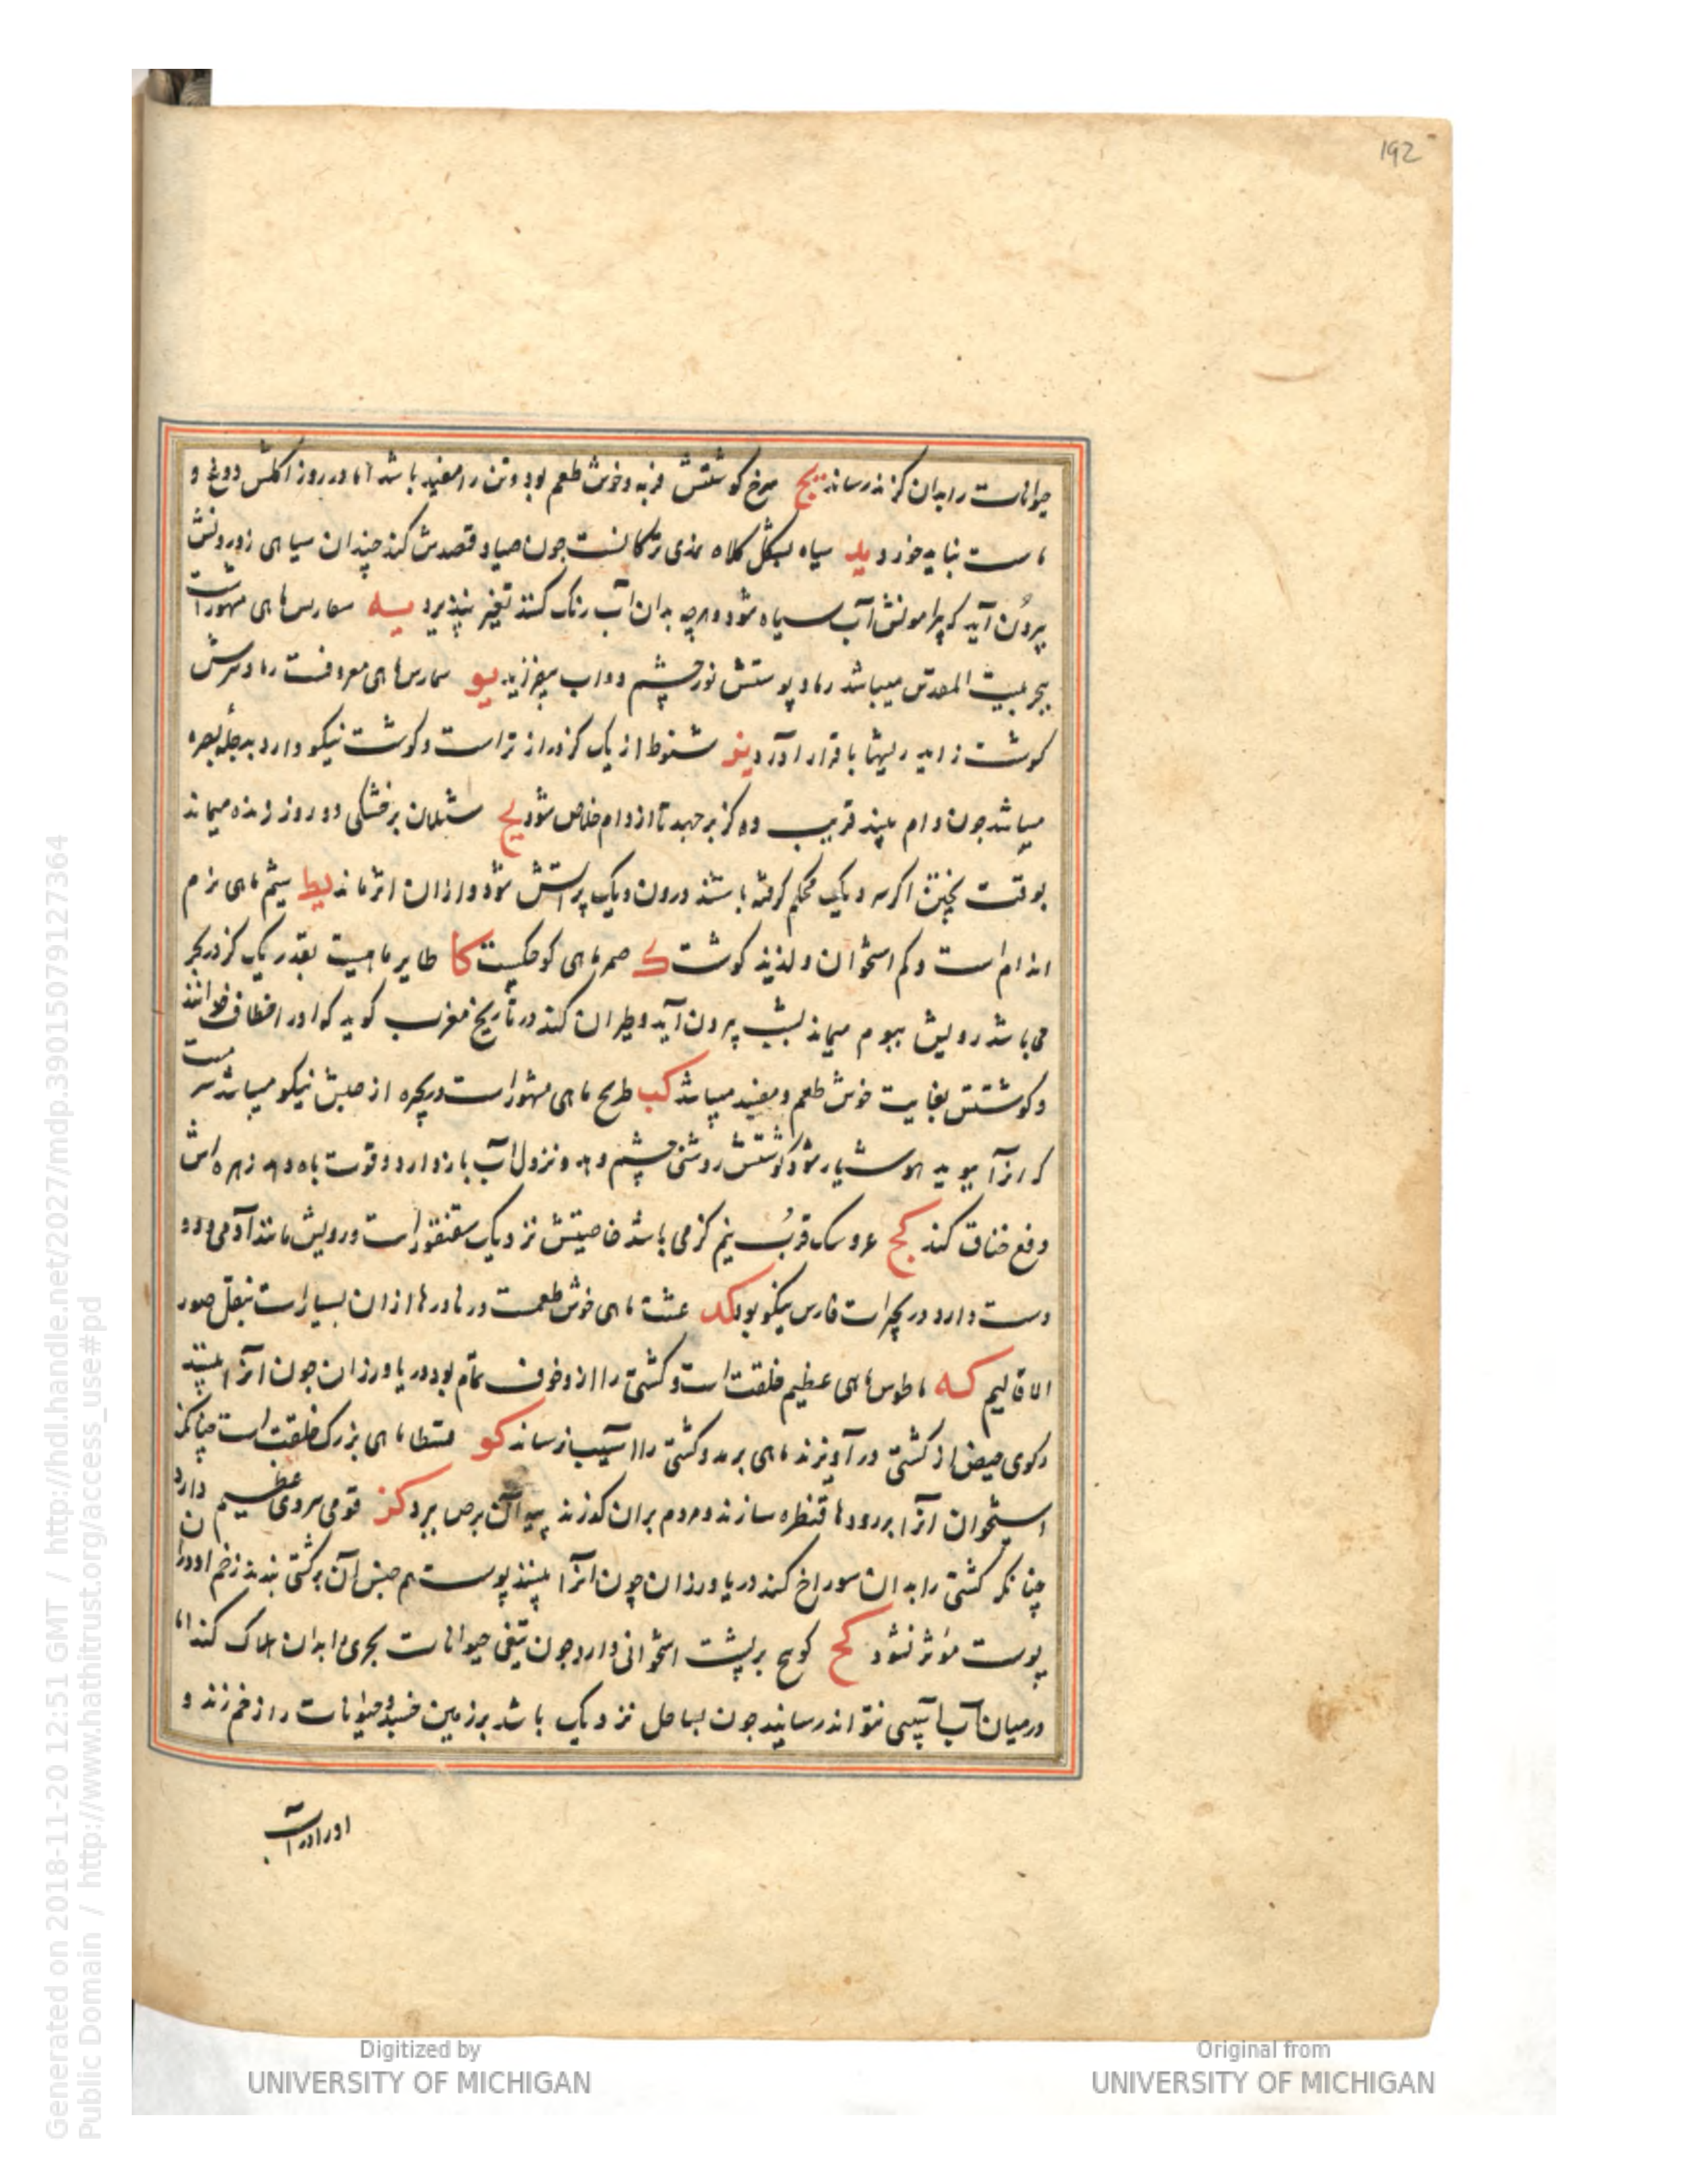 192
حیوانات را بدان گزند رساند یج سرخ گوشتش فربه و خوش طعم بود و تن را مفید باشد اما در روز اکلش دوغ و
ماست نباید خورد ید سیاه بشکل کلاه نمدی ترکانست جون صیاد قصدش کند چندان سیاهی از درونش
بیرون آید که پیرامونش آب سیاه شود و هرچه بدان آب رنک کنند تغیر نپذیرد یه ماهی مشهور است
ببحر بیت المقدس میباشد رماد پوستش نور چشم دواب بیفزاید یو ماهی معروفست رماد سرش
گوشت زاید ریشها با قرار آورد یز شنوط از یک گز دراز تر است و گوشت نیکو دارد بدجله بصره
میباشد جون دام بیند قریب ده گز برجهد تا از دام خلاص شود یح بر خشکی دو روز زنده میماند
بوقت پختن اگر سر دیک محکم گرفته باشند درون دیک پر آتش شود و از ان اثر نماند یط شیم ماهی نرم
اندام است و کم استخوان و لذیذ گوشت ک صمر ماهی کوچکیست کا طایر ماهیست بقدر یک گز در بحر
می باشد رویش ببوم میماند بشب بیرون آید و طیران کند در تاریخ مغرب گوید که او را خطاف خوانند
و گوشتش بغایت خوش طعم و مفید میباشد کب طریح ماهی مشهور است و بحیره ارجیش نیکو میباشد مست
کر انرا ببوید هوشیار شود گوشتش روشنی چشم دهد و نزول آب باز دارد و قوت باه دهد زهره اش
دفع خناق کند کج عروسک قرب نیم گز می باشد خاصیتش نزدیک سقنقور است و رویش مانند آدمی و دو
دست دارد در بحیرات فارس نیکو بود کد ماهی خوش طعمست و در نادرها از ان بسیار است بنقل صور
الاقالیم که فاطوس ماهی عظیم خلقت است و کشتی را از و خوف تمام بود دریا ورزان جون انرا بینند
رکوی حیض از کشتی در آویزند ماهی برمد و کشتی را آسیب نرساند کو قسطا ماهی بزرک خلقت است چنانک از
استخوان انرا بر رودها قنطره سازند و مردم بران گذرند پیه آن برص ببرد کز قوقی سروی عظیم دارد
چنانکه کشتی را بدان سوراخ کند دریا ورزان چون انرا بینند پوست هم جنس آن بر کشتی بندند زخم او در ان
پوست موثر نشود کح کوسج بر پشت استخوانی دارد جون تیغی حیوانات بحری را بدان هلاک کند اما
در میان آب آسیبی نتواند رسانید جون بساحل نزدیک باشد بر زمین خسبد و حیوانات را زخم زند و
Digitized by
UNIVERSITY OF MICHIGAN
Original from
UNIVERSITY OF MICHIGAN
Generated on 2018-11-20 12:51 GMT / http://hdl.handle.net/2027/mdp.39015079127364
Public Domain / http://www.hathitrust.org/access_use#pd